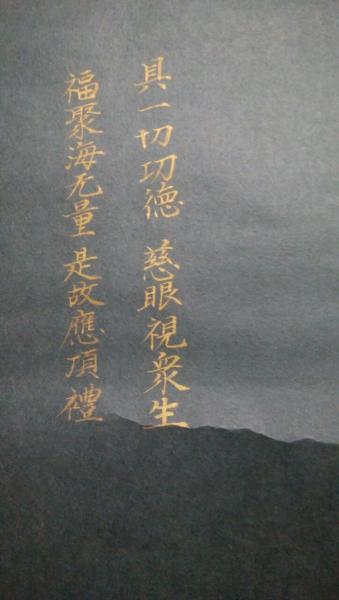 具一切功德 慈眼視衆生
福聚海无量 是故應頂禮